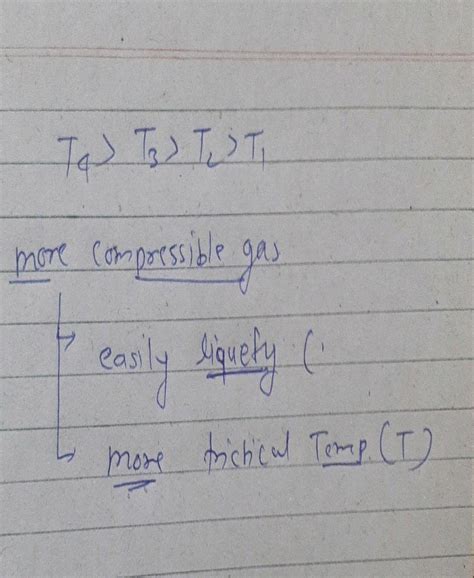 T4 > T3 > T2 > T1
more compressible gas
easily liquefy (
more Temp. (T)